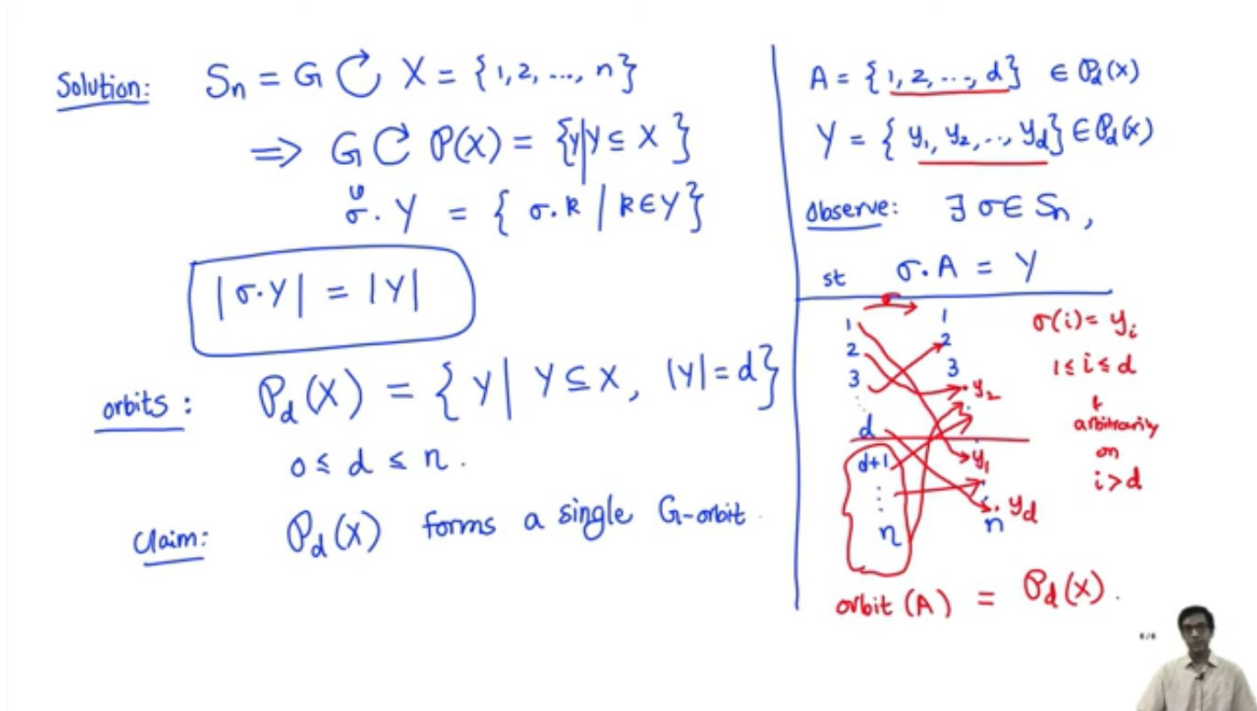 Solution: Sₙ = G ⟳ X = {1, 2, ..., n}
⟹ G ⟳ P(X) = {Y | Y ⊆ X}
σ . Y = { σ.k / k∈Y }
|σ.Y| = |Y|
orbits : P_d(X) = { Y | Y ⊆ X, |Y| = d }
0 ≤ d ≤ n .
Claim: P_d(X) forms a single G-orbit .
A = { 1, 2, ..., d } ∈ P_d(X)
Y = { y₁, y₂, .., y_d } ∈ P_d(X)
Observe: ∃ σ ∈ Sₙ ,
st σ . A = Y
σ
1 1
2 2
3 3
y₂
d
d+1 y₁
⋮
y_d
n n
σ(i) = y_i
1 ≤ i ≤ d
+
arbitrarily
on
i > d
orbit (A) = P_d(X) .
6/6